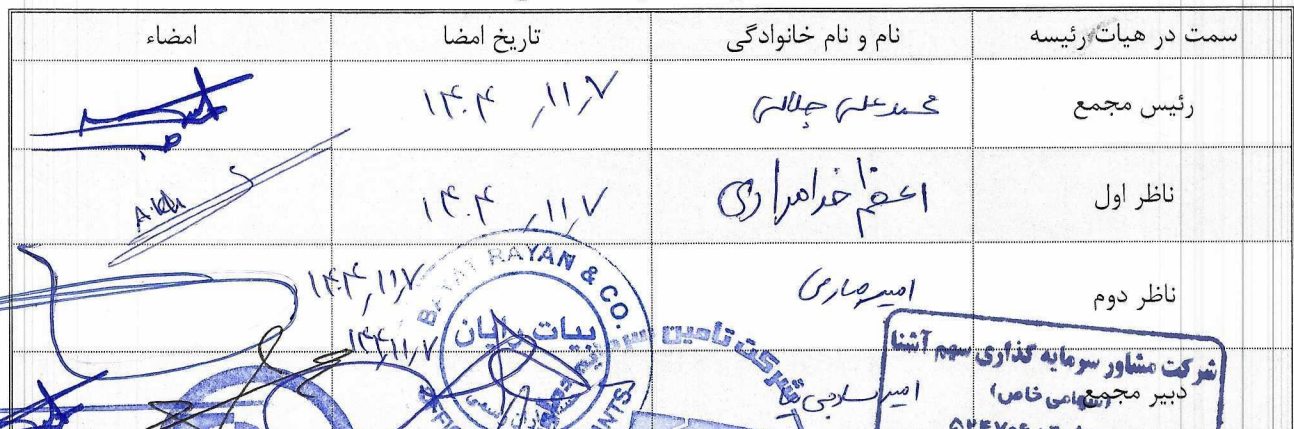 سمت در هیات رئیسه نام و نام خانوادگی تاریخ امضا امضاء
رئیس مجمع محمد علی جلالی ۱۴۰۴,۱۱,۷
ناظر اول اعظم خدامرادی ۱۴۰۴,۱۱,۷
A.Kh
ناظر دوم امیر ۱۴۰۴,۱۱,۷
دبیر مجمع امیر ۱۴۰۴,۱۱,۷
BAYAT RAYAN & CO.
بیات رایان
شرکت تامین سرمایه
شرکت مشاور سرمایه گذاری سهم آشنا
(سهامی خاص)